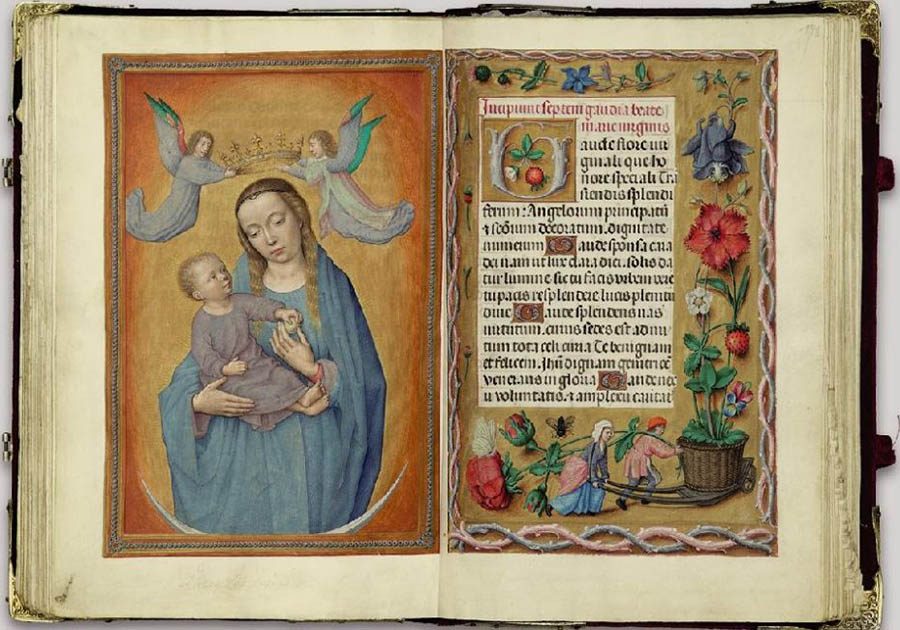 Incipiunt septem gaudia beate
marie virginis
Gaude flore vir
ginali que ho
nore speciali Trā
scendis splendi
ferum: Angelorum principatū
& decoratum. dignitate
numerum Gaude sponsa cara
dei nam ut lux clara diei. solis da
tur lumine. sic tu facis orbem vere
tu pacis resplendere lucis plenitu
dine Gaude splendens vas
uirtutum. cuius sedes est ad nu
tum tota celi curia Te benignam
et felicem. Jhū dignam
venerans in gloria Gaude nex
u voluntatis. & amplexu caritat